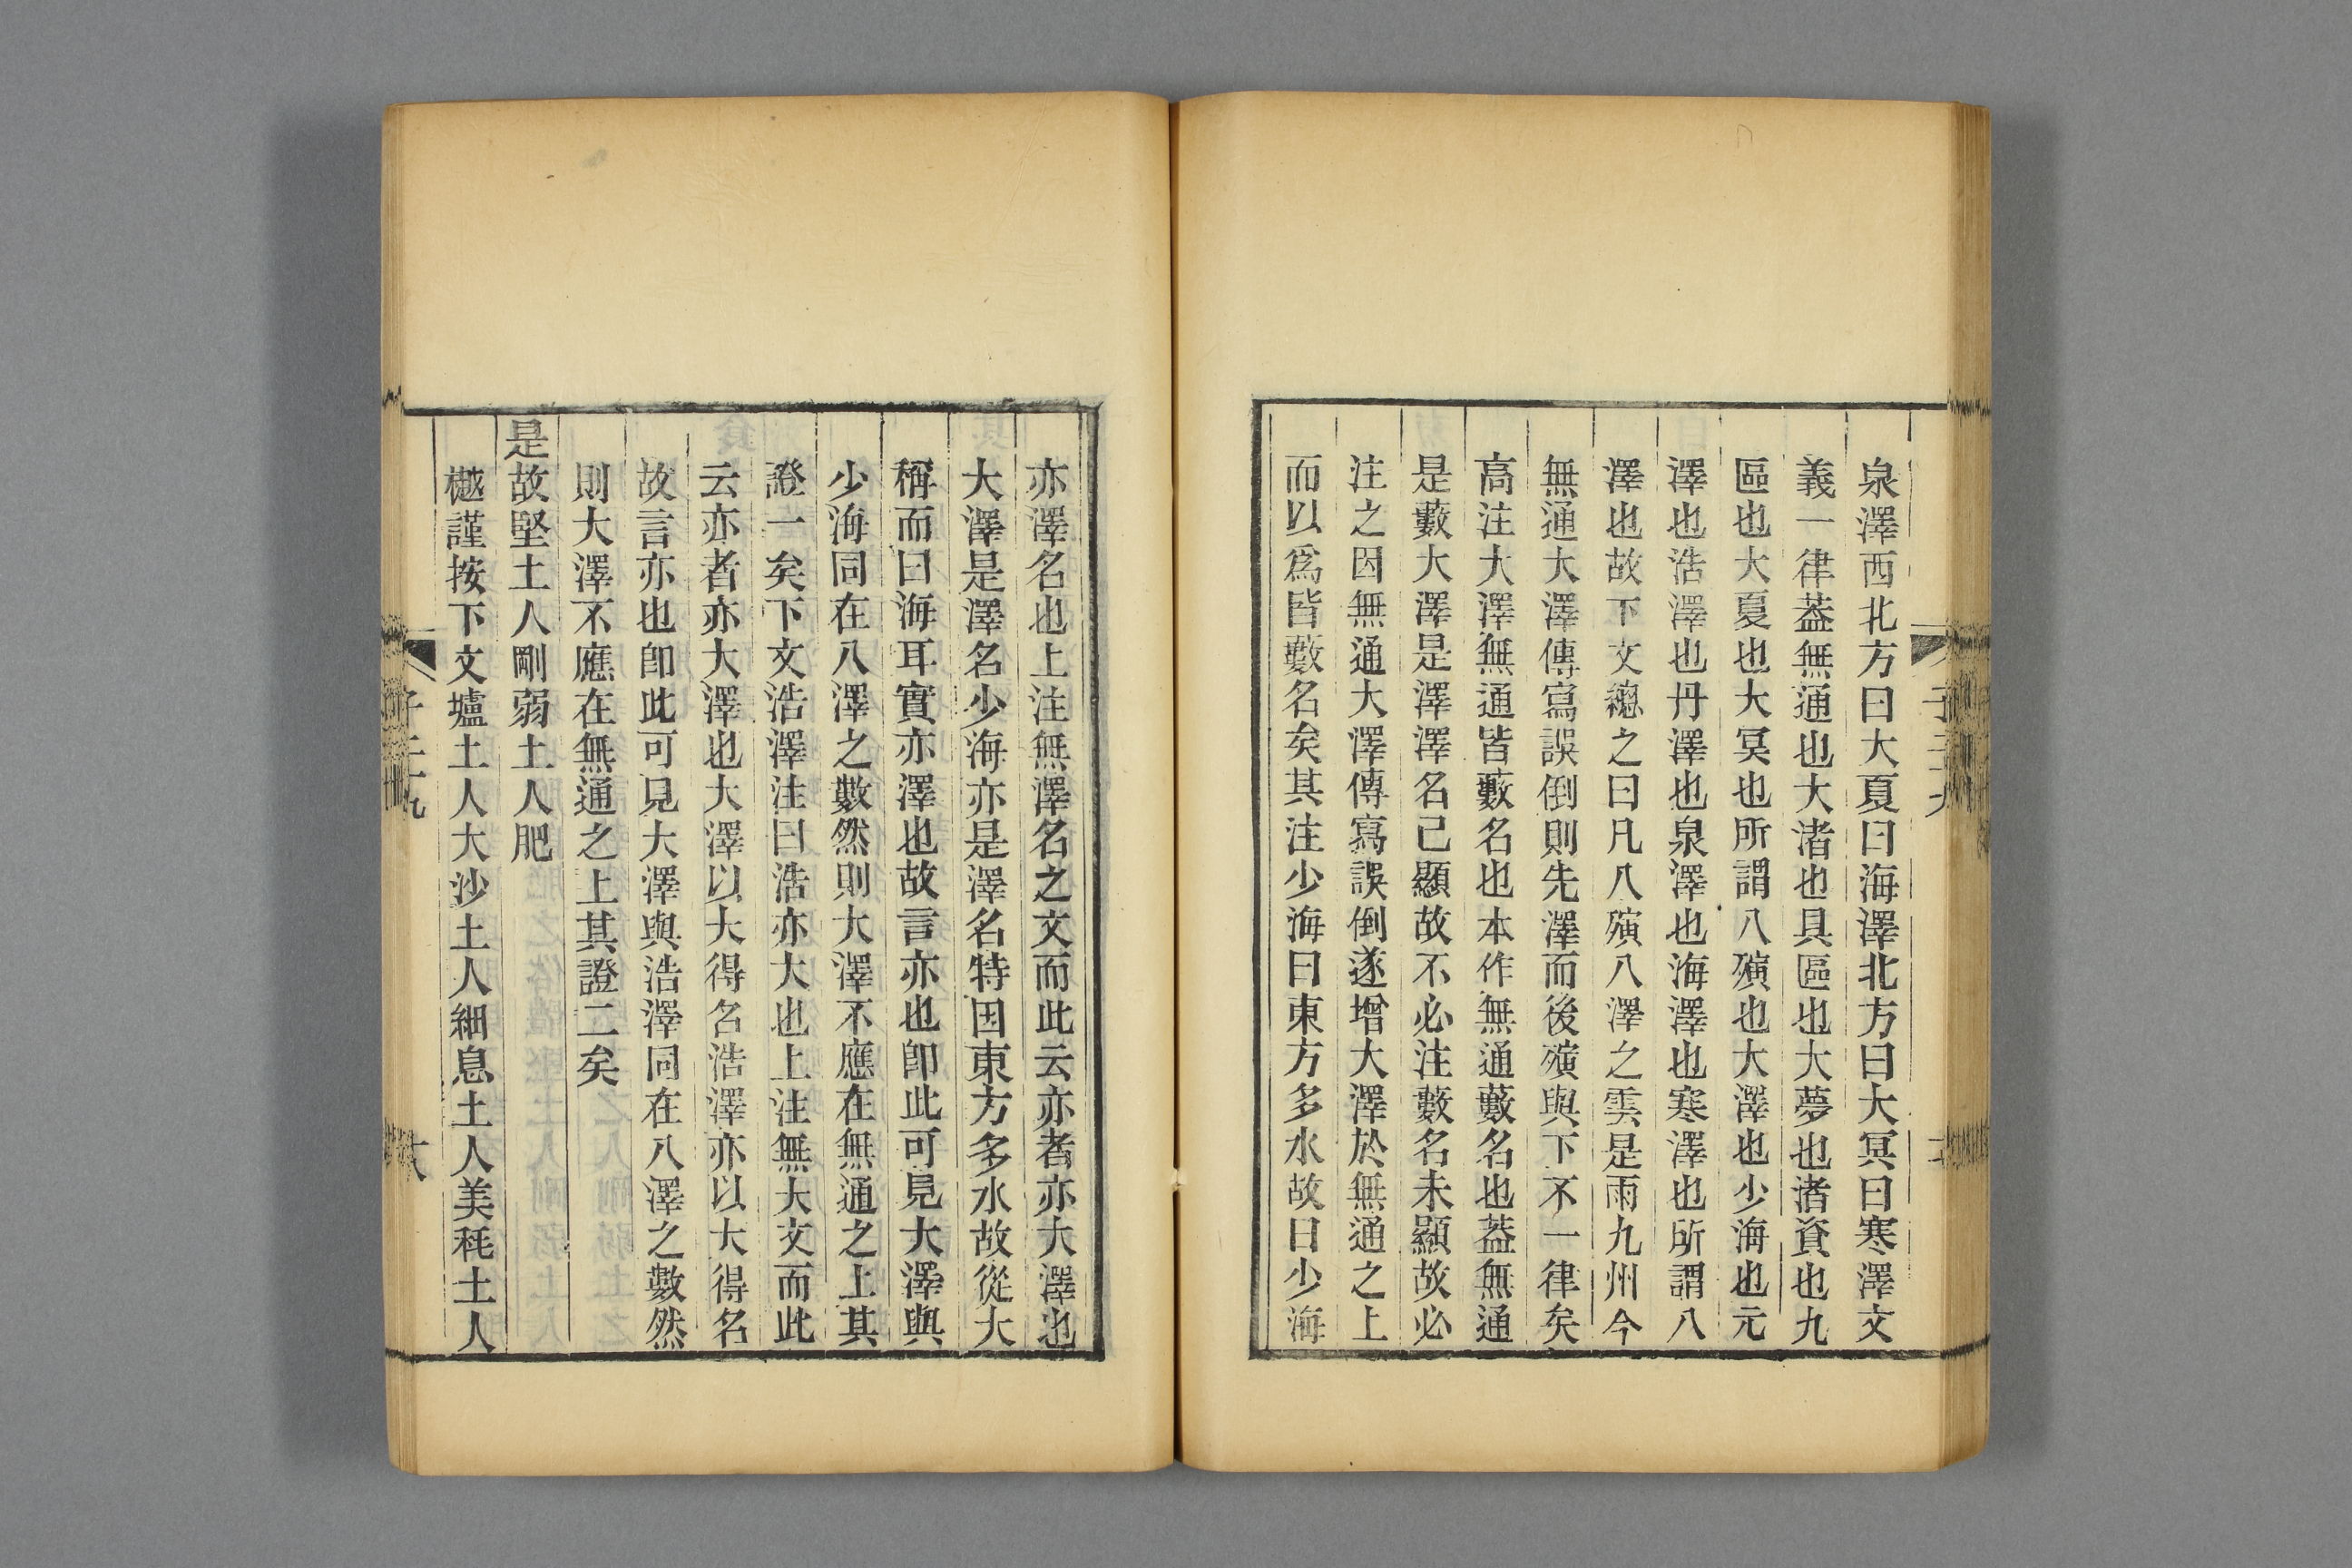 泉澤西北方曰大夏曰海澤北方曰大冥曰寒澤文
義一律葢無通也大渚也具區也大夢也渚資也九
區也大夏也大冥也所謂八殥也大澤也少海也元
澤也浩澤也丹澤也泉澤也海澤也寒澤也所謂八
澤也故下文總之曰凡八殥八澤之雲是雨九州今
無通大澤傳寫誤倒則先澤而後殥與下不一律矣
高注大澤無通皆藪名也本作無通藪名也葢無通
是藪大澤是澤澤名已顯故不必注藪名未顯故必
注之因無通大澤傳寫誤倒遂增大澤於無通之上
而以爲皆藪名矣其注少海曰東方多水故曰少海
亦澤名也上注無澤名之文而此云亦者亦大澤也
大澤是澤名少海亦是澤名特因東方多水故從大
稱而曰海耳實亦澤也故言亦也卽此可見大澤與
少海同在八澤之數然則大澤不應在無通之上其
證一矣下文浩澤注曰浩亦大也上注無大文而此
云亦者亦大澤也大澤以大得名浩澤亦以大得名
故言亦也卽此可見大澤與浩澤同在八澤之數然
則大澤不應在無通之上其證二矣
是故堅土人剛弱土人肥
樾謹按下文壚土人大沙土人細息土人美秏土人